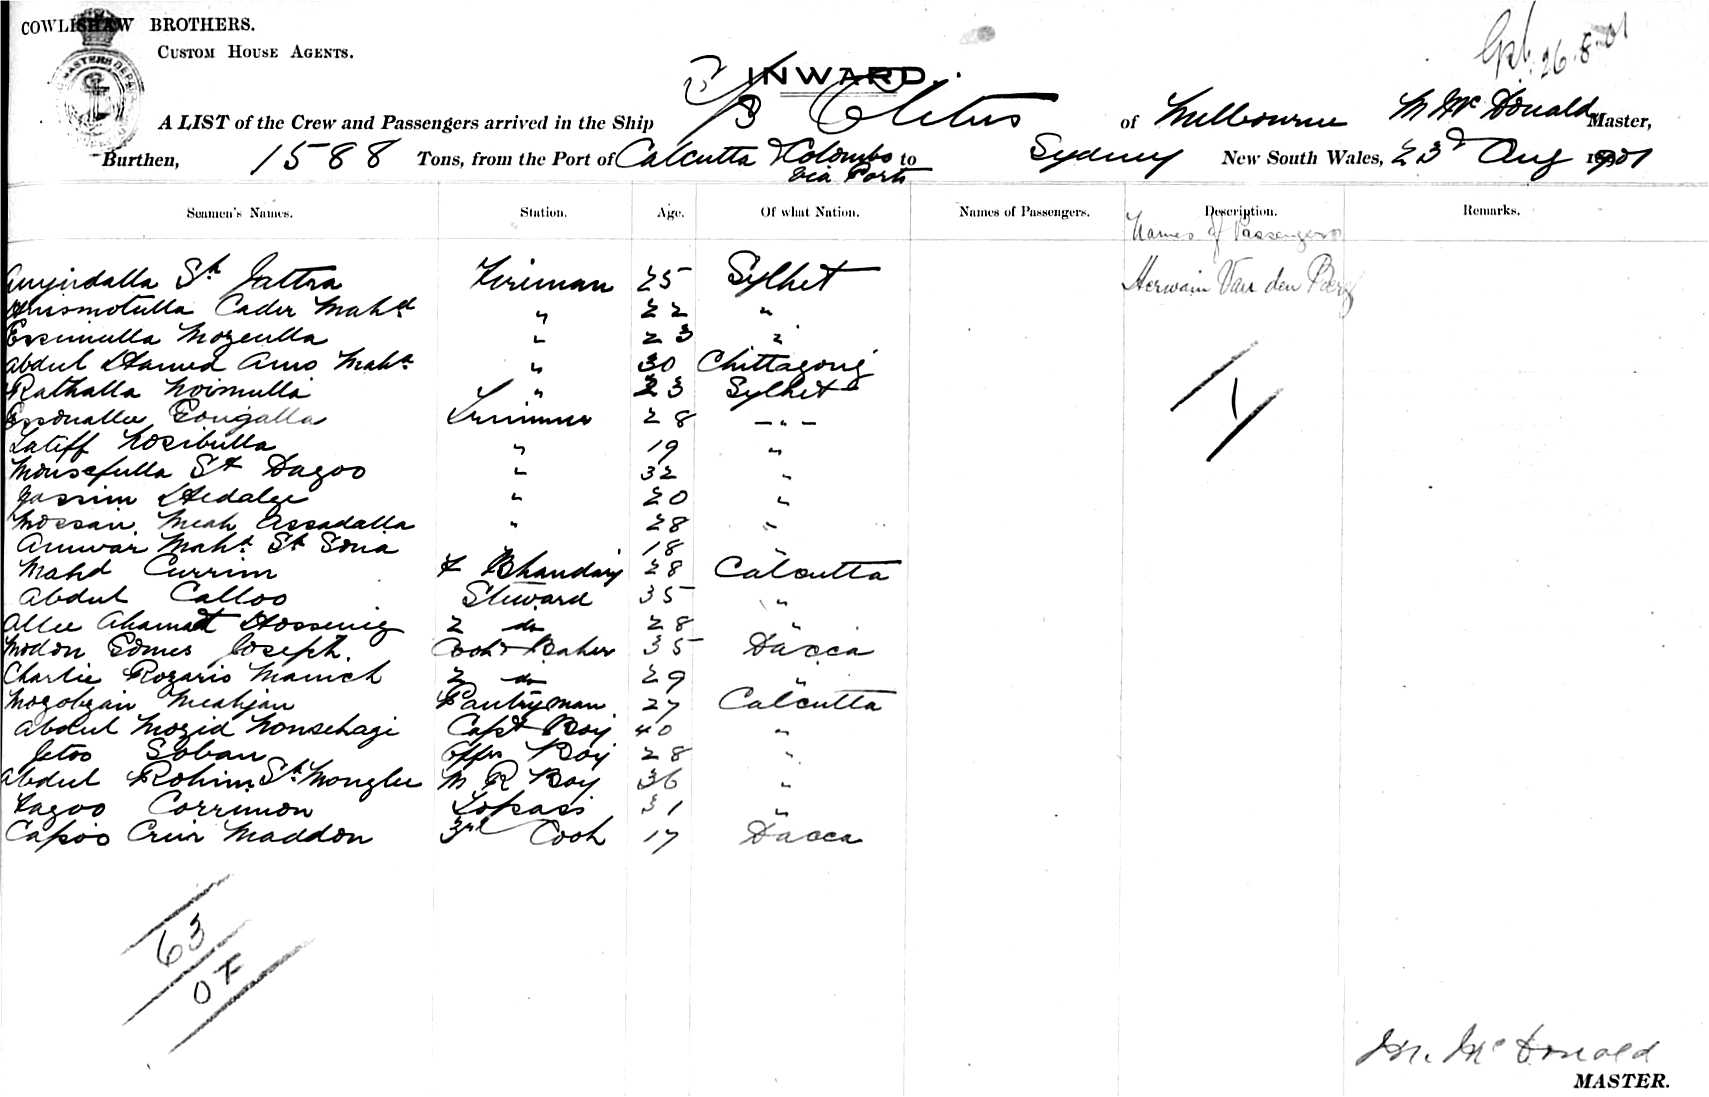 COWLISHAW BROTHERS.
CUSTOM HOUSE AGENTS.
MASTER
26.8.01
INWARD.
A LIST of the Crew and Passengers arrived in the Ship S/S Clitus of Melbourne M Mc Donald Master,
Burthen, 1588 Tons, from the Port of Calcutta & Colombo to Sydney New South Wales, 23d Aug 1901
via Ports
Seamen's Names. Station. Age. Of what Nation. Names of Passengers. Description. Remarks.
Names of Passengers
Sk Jattra Fireman 25 Sylhet Herwain Van den Berg
Cader Mahd " 22 "
Essimulla Mozeulla " 23 "
Abdul Hamed Amo Mahd " 30 Chittagong
Rathalla Noimulla " 23 Sylhet
Essonallee Gougalla Trimmer 28 - " -
Lateff Nosibulla " 19 "
Monsefulla Sk Dagoo " 32 "
Jassim Hedalee " 20 "
Hossain Meah Assadalla " 28 "
Annwar Mahd Sk Sona " 18 "
Mahd Currim & Bhandary 28 Calcutta
Abdul Calloo Steward 35 "
Allee Ahamat Hosseing 2 do 28 "
Modon Gomes Joseph. Cook & Baker 35 Dacca
Charlie Rozario Manick 2 do 29 "
Mozobjan Meahjan Pantryman 27 Calcutta
Abdul Mozid Nonsehagi Capt Boy 40 "
Jetoo Soban Offrs Boy 28 "
Abdul Rohim Sk Monglee M R Boy 36 "
Fagoo Corrimon Topass 31 "
Capoo Cruir Maddon 3rd Cook 17 Dacca
1
63
0 F
M. Mc Donald
MASTER.